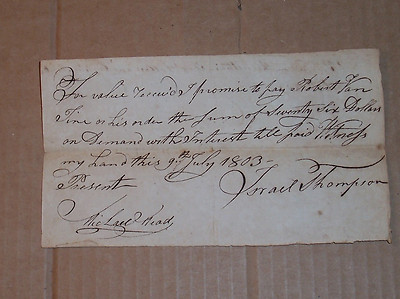 For value receiv'd I promise to pay Robert Van
Tine or his order the sum of Seventy Six Dollars
on Demand with Interest till paid Witness
my hand this 9th July 1803 -
Present Israel Thompson
Head